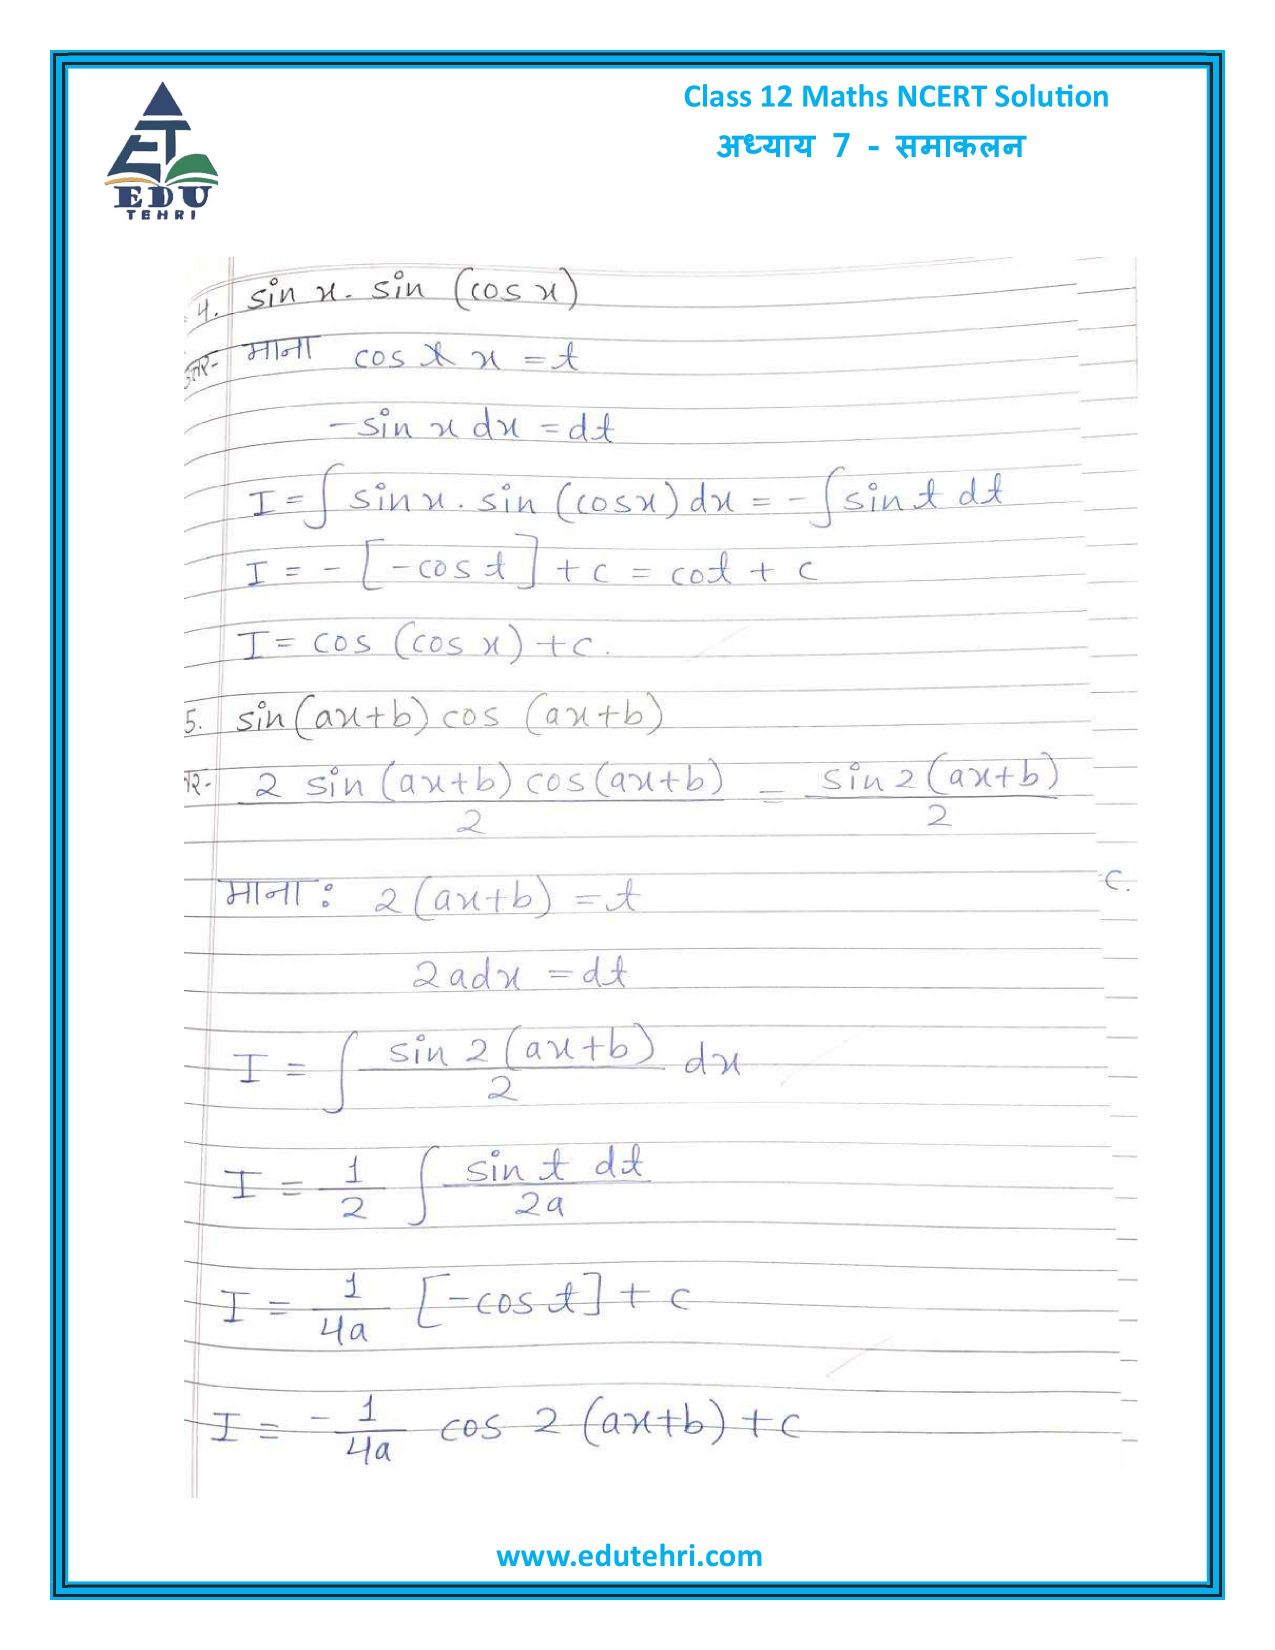 Class 12 Maths NCERT Solution
अध्याय 7 - समाकलन
EDU
TEHRI
4. sin x. sin (cos x)
माना cos x = t
-sin x dx = dt
I = ∫ sin x . sin (cos x) dx = - ∫ sin t dt
I = - [-cos t] + c = cot + c
I = cos (cos x) + c.
5. sin (ax+b) cos (ax+b)
2 sin (ax+b) cos (ax+b) / 2 = sin 2 (ax+b) / 2
c.
माना : 2 (ax+b) = t
2adx = dt
I = ∫ sin 2 (ax+b) / 2 dx
I = 1/2 ∫ sin t dt / 2a
I = 1/4a [-cos t] + c
I = - 1/4a cos 2 (ax+b) + c
www.edutehri.com